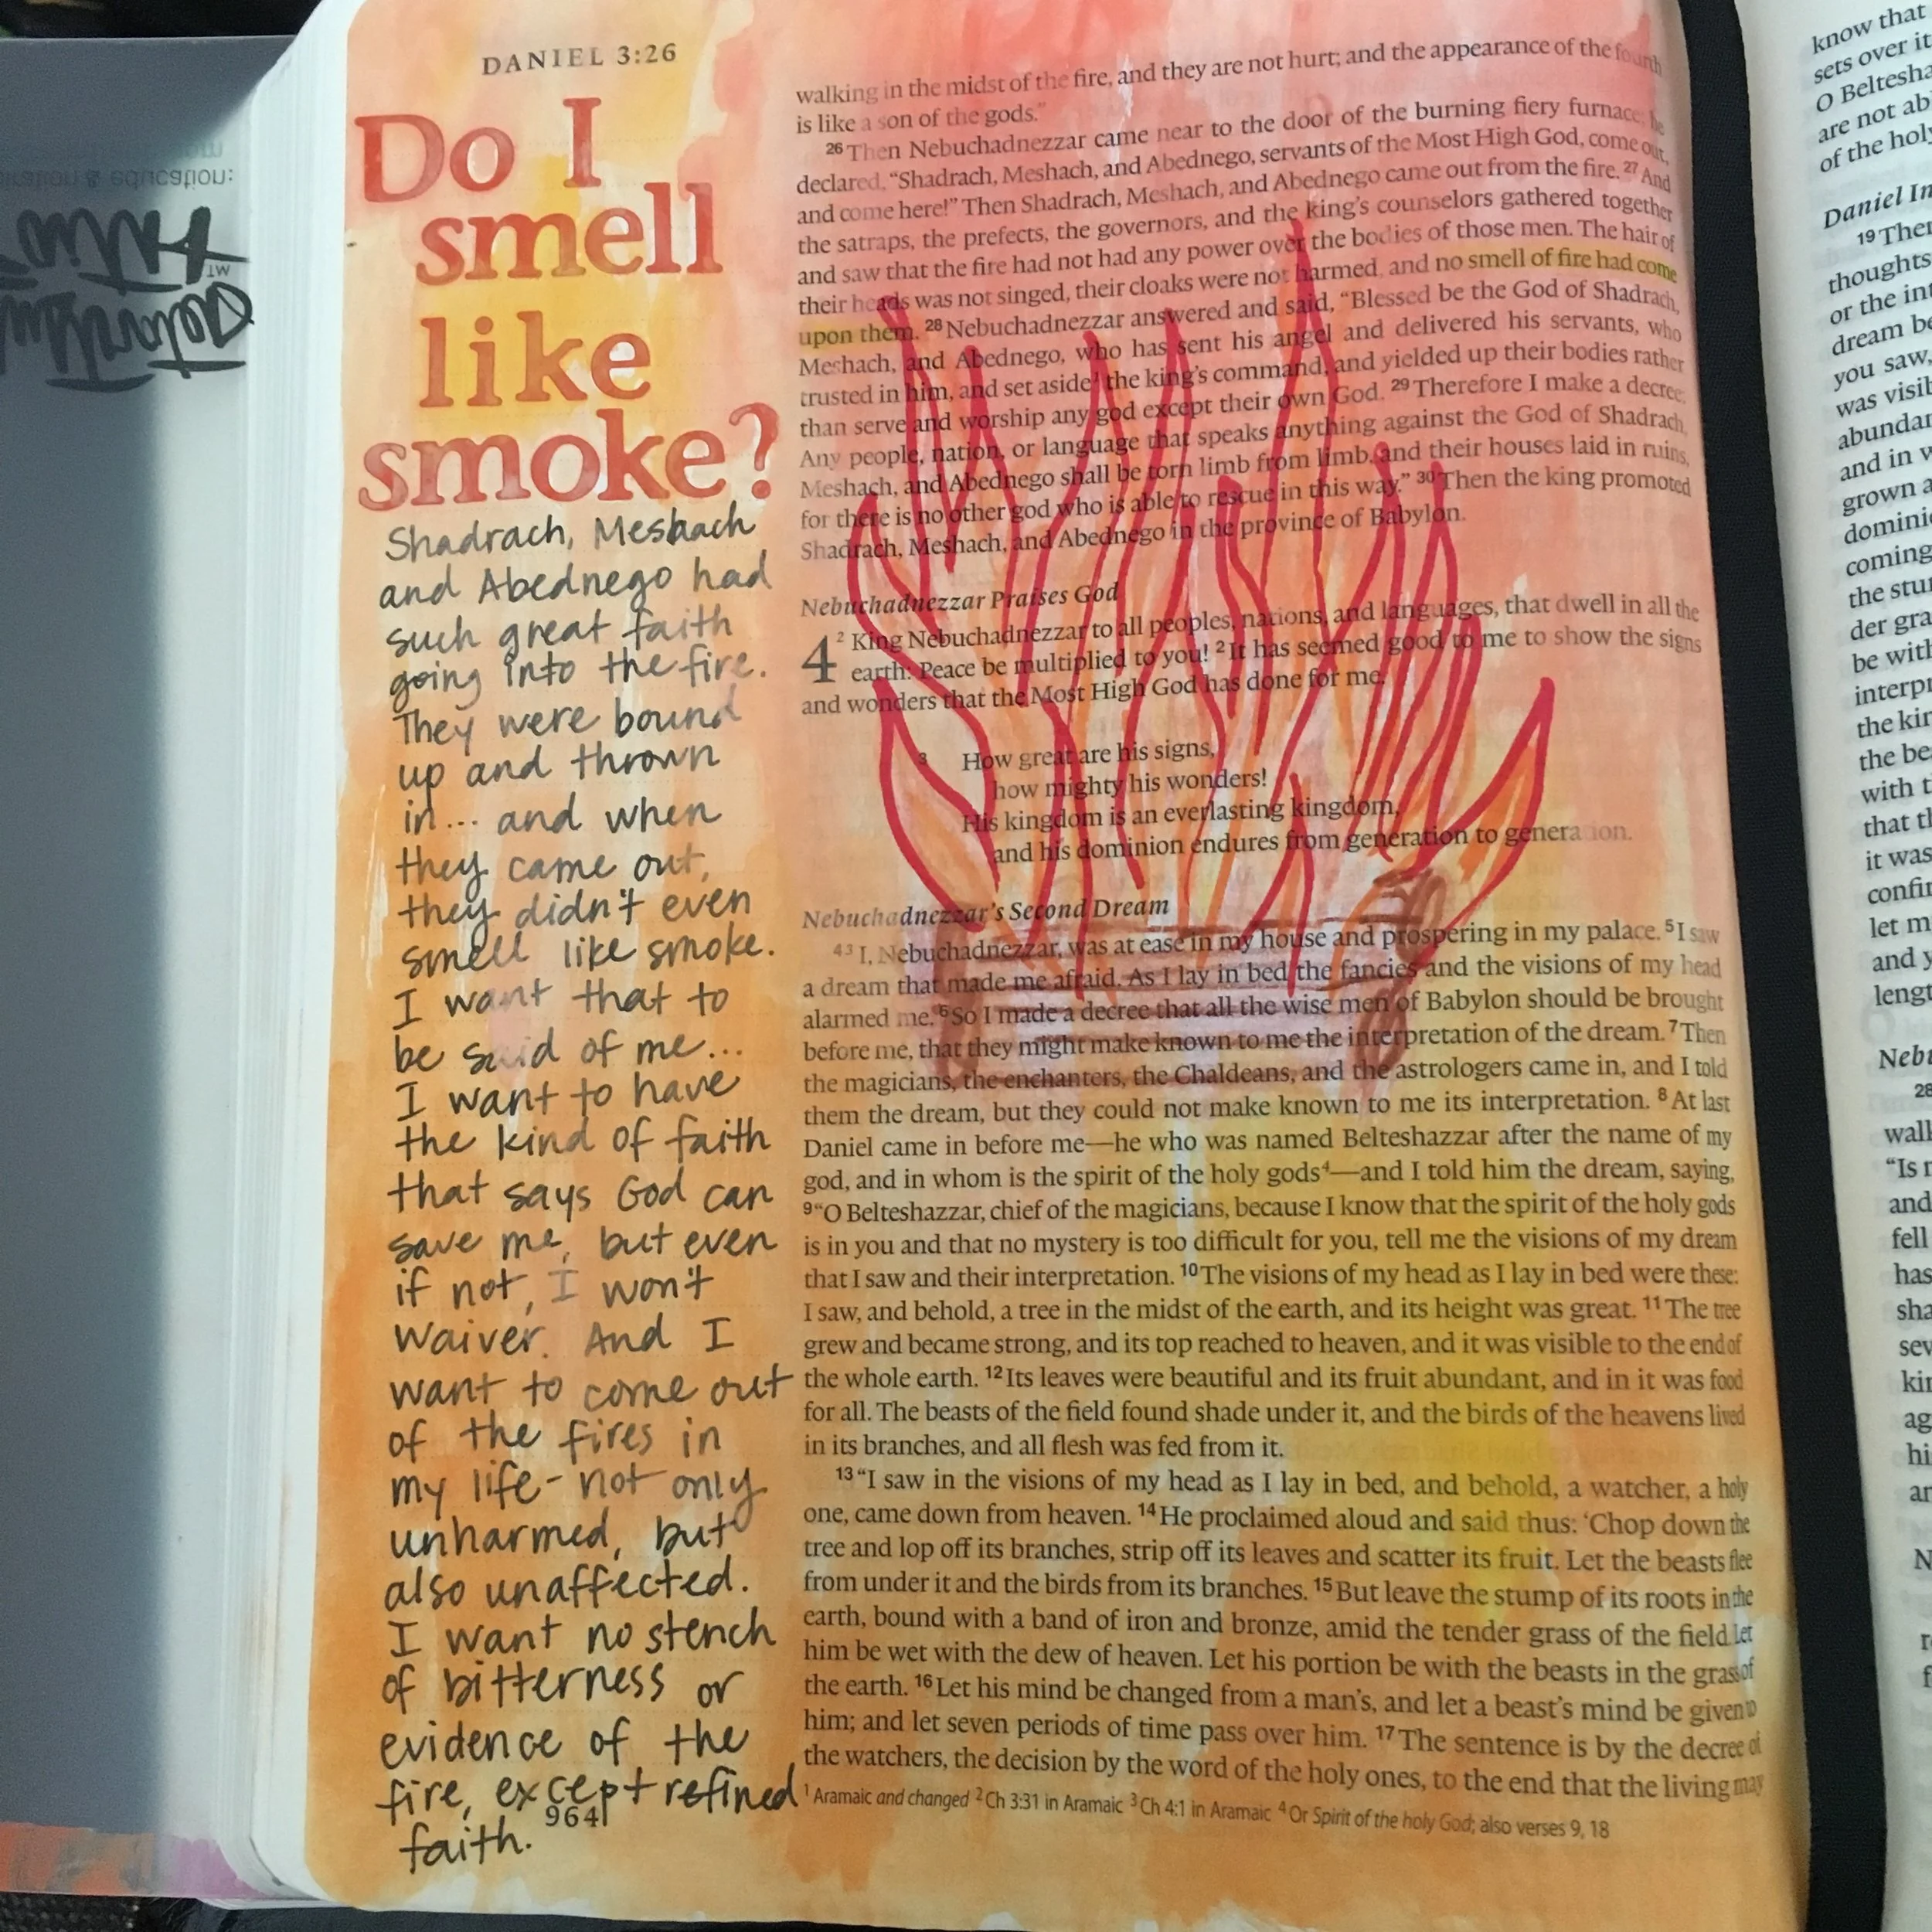 DANIEL 3:26
Do I
smell
like
smoke?
Shadrach, Meshach
and Abednego had
such great faith
going into the fire.
They were bound
up and thrown
in... and when
they came out,
they didn't even
smell like smoke.
I want that to
be said of me...
I want to have
the kind of faith
that says God can
save me, but even
if not, I won't
waiver. And I
want to come out
of the fires in
my life - not only
unharmed, but
also unaffected.
I want no stench
of bitterness or
evidence of the
fire, except refined
faith.
964
walking in the midst of the fire, and they are not hurt; and the appearance of the fourth
is like a son of the gods."
26 Then Nebuchadnezzar came near to the door of the burning fiery furnace; he
declared, "Shadrach, Meshach, and Abednego, servants of the Most High God, come out,
and come here!" Then Shadrach, Meshach, and Abednego came out from the fire. 27 And
the satraps, the prefects, the governors, and the king's counselors gathered together
and saw that the fire had not had any power over the bodies of those men. The hair of
their heads was not singed, their cloaks were not harmed, and no smell of fire had come
upon them. 28 Nebuchadnezzar answered and said, "Blessed be the God of Shadrach,
Meshach, and Abednego, who has sent his angel and delivered his servants, who
trusted in him, and set aside1 the king's command, and yielded up their bodies rather
than serve and worship any god except their own God. 29 Therefore I make a decree:
Any people, nation, or language that speaks anything against the God of Shadrach,
Meshach, and Abednego shall be torn limb from limb, and their houses laid in ruins,
for there is no other god who is able to rescue in this way." 30 Then the king promoted
Shadrach, Meshach, and Abednego in the province of Babylon.
Nebuchadnezzar Praises God
4 2 King Nebuchadnezzar to all peoples, nations, and languages, that dwell in all the
earth: Peace be multiplied to you! 2 It has seemed good to me to show the signs
and wonders that the Most High God has done for me.
3 How great are his signs,
how mighty his wonders!
His kingdom is an everlasting kingdom,
and his dominion endures from generation to generation.
Nebuchadnezzar's Second Dream
4 3 I, Nebuchadnezzar, was at ease in my house and prospering in my palace. 5 I saw
a dream that made me afraid. As I lay in bed the fancies and the visions of my head
alarmed me. 6 So I made a decree that all the wise men of Babylon should be brought
before me, that they might make known to me the interpretation of the dream. 7 Then
the magicians, the enchanters, the Chaldeans, and the astrologers came in, and I told
them the dream, but they could not make known to me its interpretation. 8 At last
Daniel came in before me—he who was named Belteshazzar after the name of my
god, and in whom is the spirit of the holy gods4—and I told him the dream, saying,
9 "O Belteshazzar, chief of the magicians, because I know that the spirit of the holy gods
is in you and that no mystery is too difficult for you, tell me the visions of my dream
that I saw and their interpretation. 10 The visions of my head as I lay in bed were these:
I saw, and behold, a tree in the midst of the earth, and its height was great. 11 The tree
grew and became strong, and its top reached to heaven, and it was visible to the end of
the whole earth. 12 Its leaves were beautiful and its fruit abundant, and in it was food
for all. The beasts of the field found shade under it, and the birds of the heavens lived
in its branches, and all flesh was fed from it.
13 "I saw in the visions of my head as I lay in bed, and behold, a watcher, a holy
one, came down from heaven. 14 He proclaimed aloud and said thus: 'Chop down the
tree and lop off its branches, strip off its leaves and scatter its fruit. Let the beasts flee
from under it and the birds from its branches. 15 But leave the stump of its roots in the
earth, bound with a band of iron and bronze, amid the tender grass of the field. Let
him be wet with the dew of heaven. Let his portion be with the beasts in the grass of
the earth. 16 Let his mind be changed from a man's, and let a beast's mind be given to
him; and let seven periods of time pass over him. 17 The sentence is by the decree of
the watchers, the decision by the word of the holy ones, to the end that the living may
1 Aramaic and changed 2 Ch 3:31 in Aramaic 3 Ch 4:1 in Aramaic 4 Or Spirit of the holy God; also verses 9, 18
know that
sets over it
O Beltesha
are not ab
of the holy
Daniel In
19 Ther
thoughts
or the int
dream be
you saw,
was visib
abundan
and in w
grown a
dominio
coming
the stu
der gra
be with
interpr
the kin
the be
with t
that th
it was
confir
let m
and y
leng
Nebu
28
walk
"Is n
and
fell
has
sha
sev
kin
ag
hi
an
N